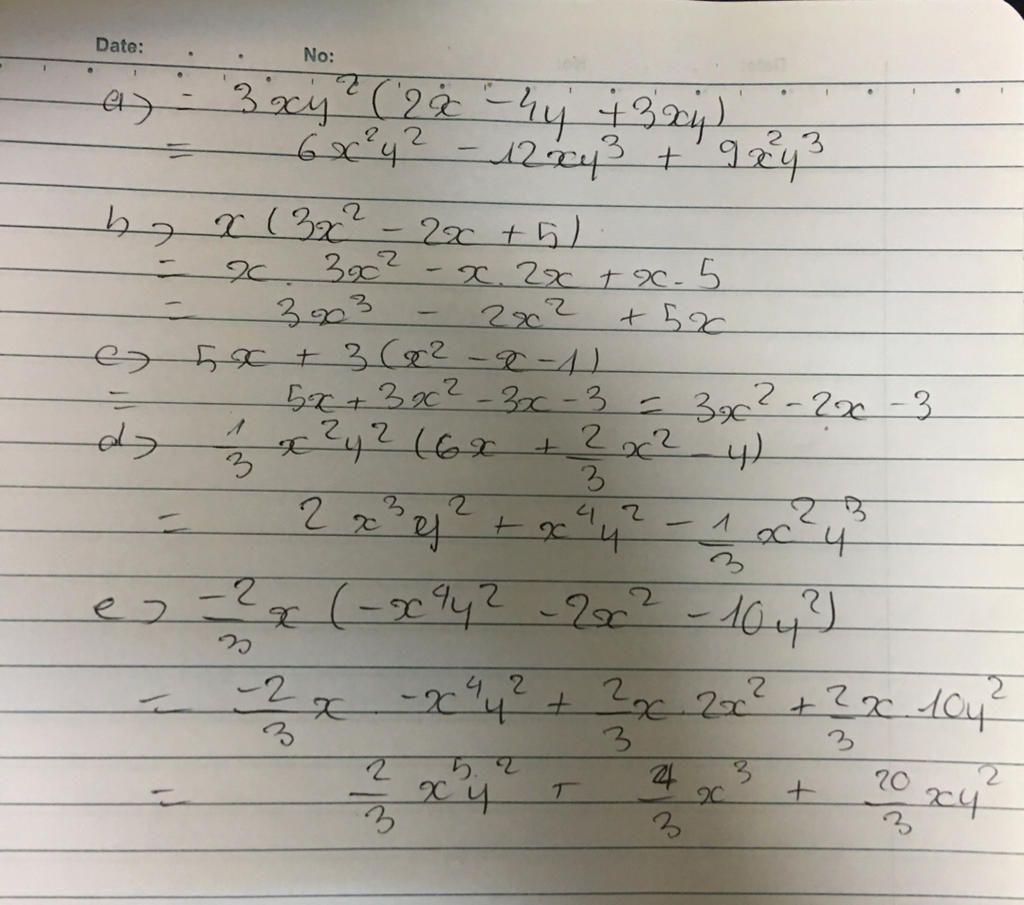 Date: . . No:
a) = 3xy² (2x - 4y + 3xy)
= 6x²y² - 12xy³ + 9x²y³
b) x (3x² - 2x + 5)
= x. 3x² - x. 2x + x. 5
= 3x³ - 2x² + 5x
c) 5x + 3 (x² - x - 1)
= 5x + 3x² - 3x - 3 = 3x² - 2x - 3
d) 1/3 x²y² (6x + 2/3 x² - y)
= 2x³y² + x⁴y² - 1/3 x²y³
e) -2/3 x (-x⁴y² - 2x² - 10y²)
= -2/3 x . -x⁴y² + 2/3 x. 2x² + 2/3 x. 10y²
= 2/3 x⁵y² + 4/3 x³ + 20/3 xy²